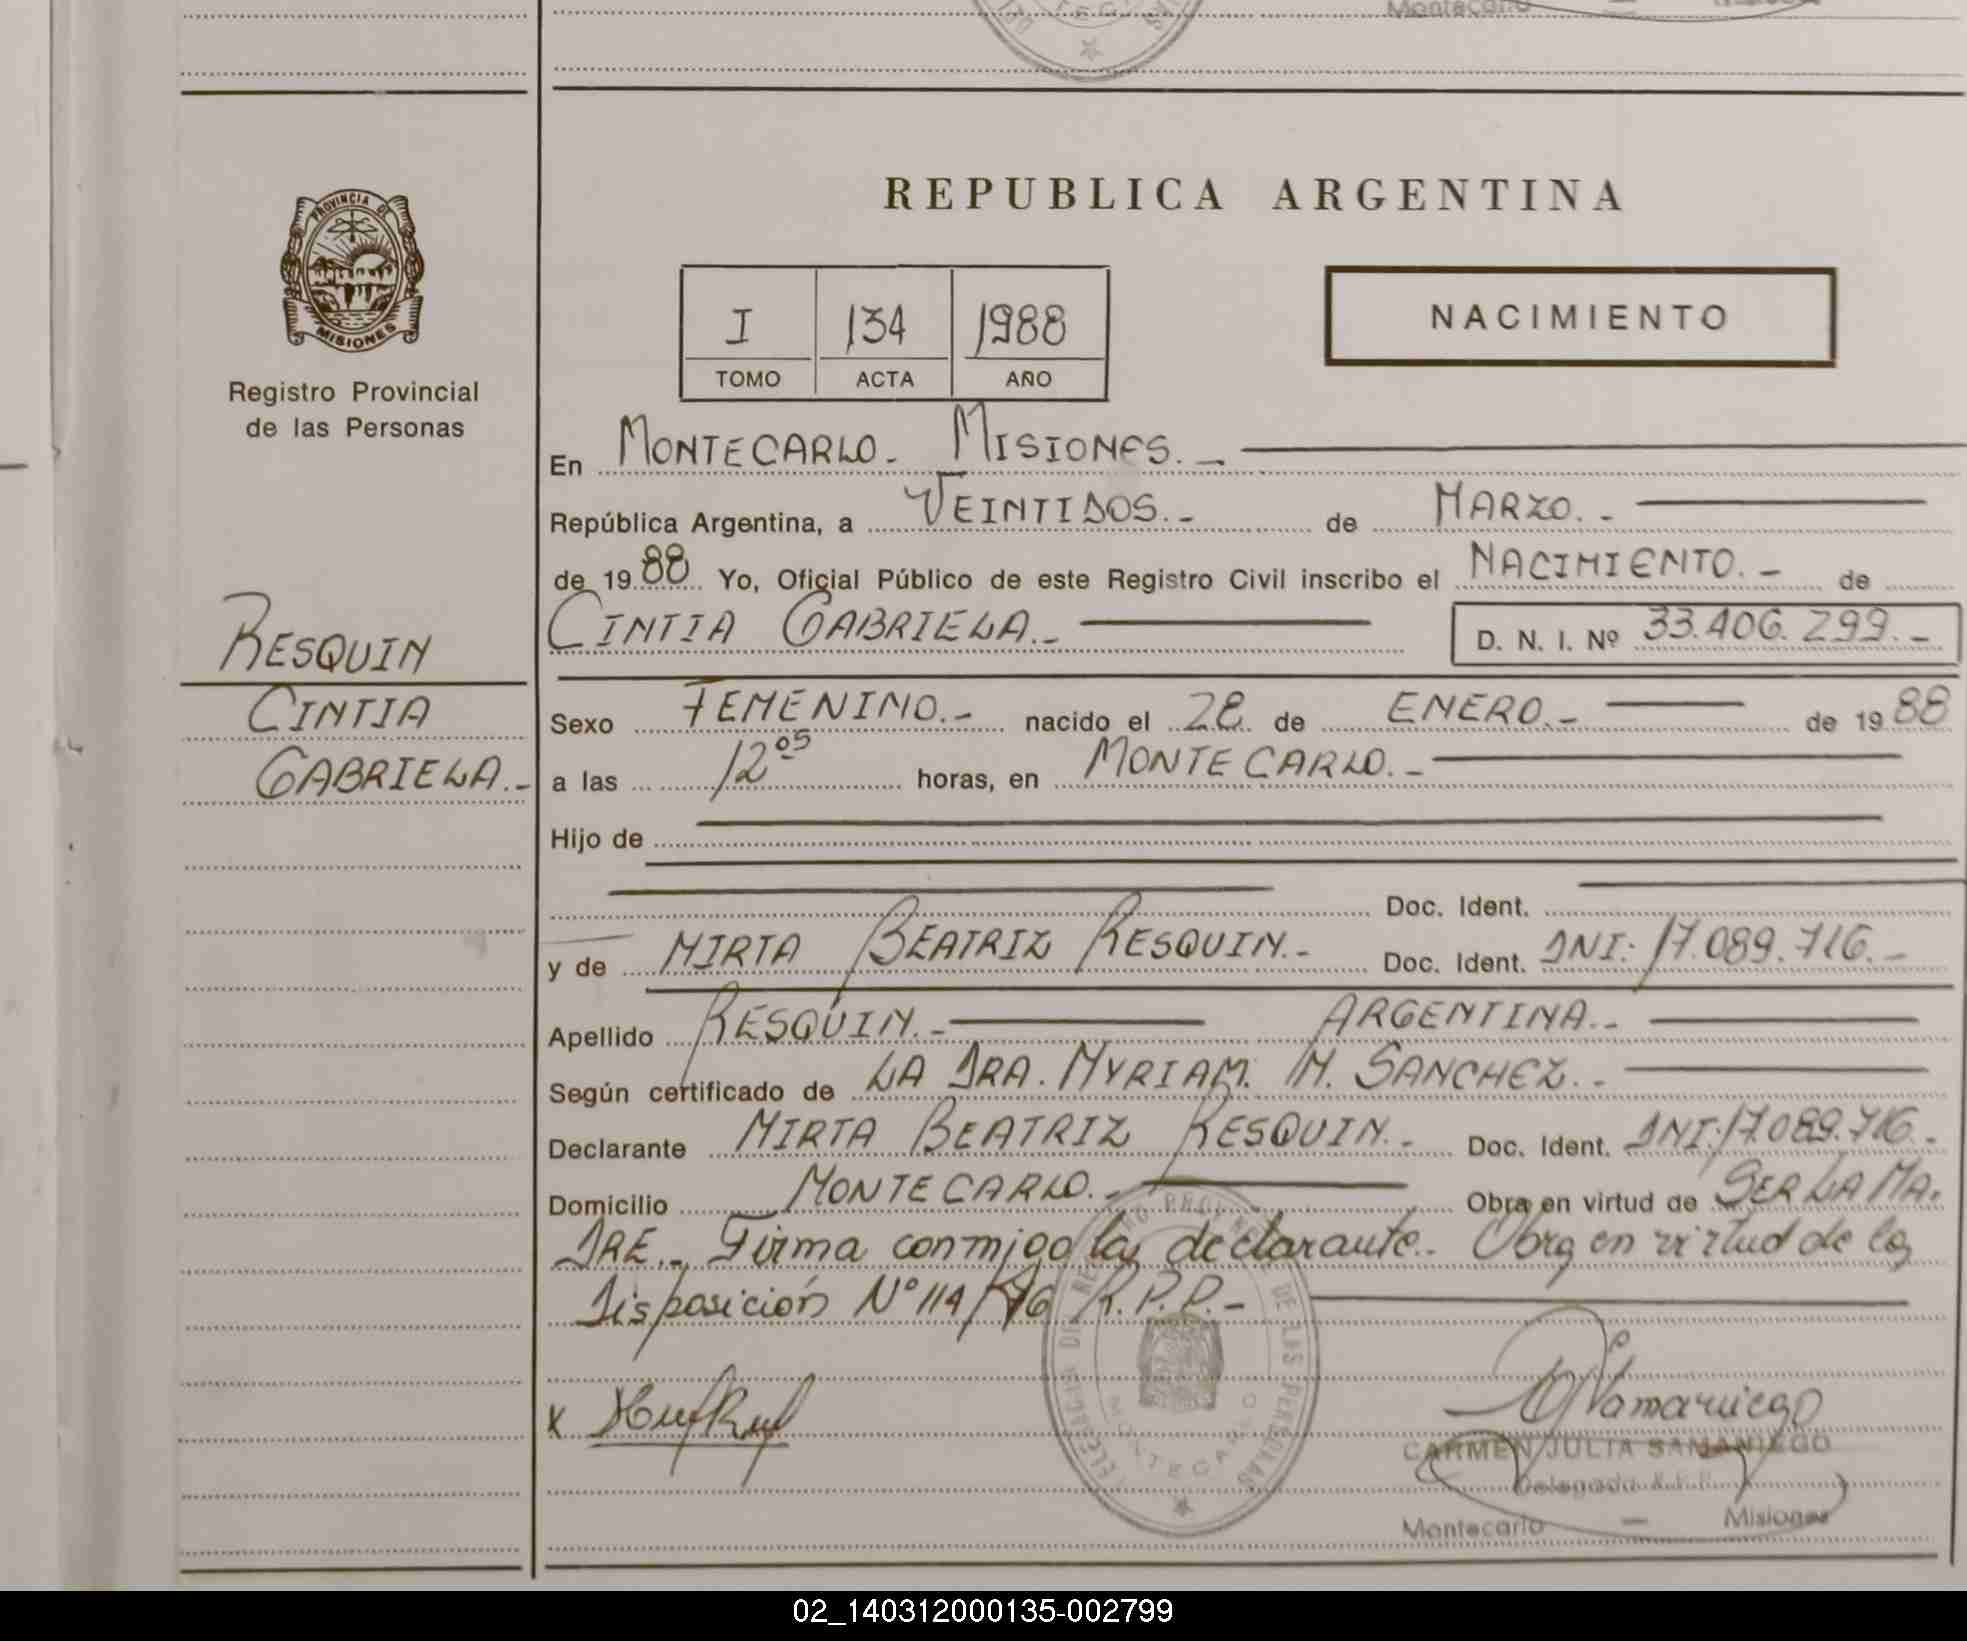 Montecarlo
PROVINCIA DE
MISIONES
Registro Provincial
de las Personas
RESQUIN
CINTIA
GABRIELA.-
REPUBLICA ARGENTINA
I 134 1988
TOMO ACTA AÑO
NACIMIENTO
En MONTECARLO. MISIONES.-
República Argentina, a VEINTIDOS.- de MARZO.-
de 1988 Yo, Oficial Público de este Registro Civil inscribo el NACIMIENTO.- de
CINTIA GABRIELA.- D. N. I. Nº 33.406.299.-
Sexo FEMENINO.- nacido el 28 de ENERO.- de 1988
a las 12 05 horas, en MONTECARLO.-
Hijo de
Doc. Ident.
y de MIRTA BEATRIZ RESQUIN.- Doc. Ident. DNI: 17.089.716.-
Apellido RESQUIN.- ARGENTINA.-
Según certificado de LA DRA. MYRIAM. M. SANCHEZ.-
Declarante MIRTA BEATRIZ RESQUIN.- Doc. Ident. DNI: 17.089.716.-
Domicilio MONTECARLO.- Obra en virtud de SER LA MA.
DRE.- Firma conmigo la declarante.- Obra en virtud de la
Disposición Nº 114/76 R.P.P.-
DELEGACIA DEL REGISTRO PROVINCIAL DE LAS PERSONAS
MONTECARLO
x
CARMEN JULIA SAMANIEGO
Delegada R.P.P.
Montecarlo — Misiones
02_140312000135-002799